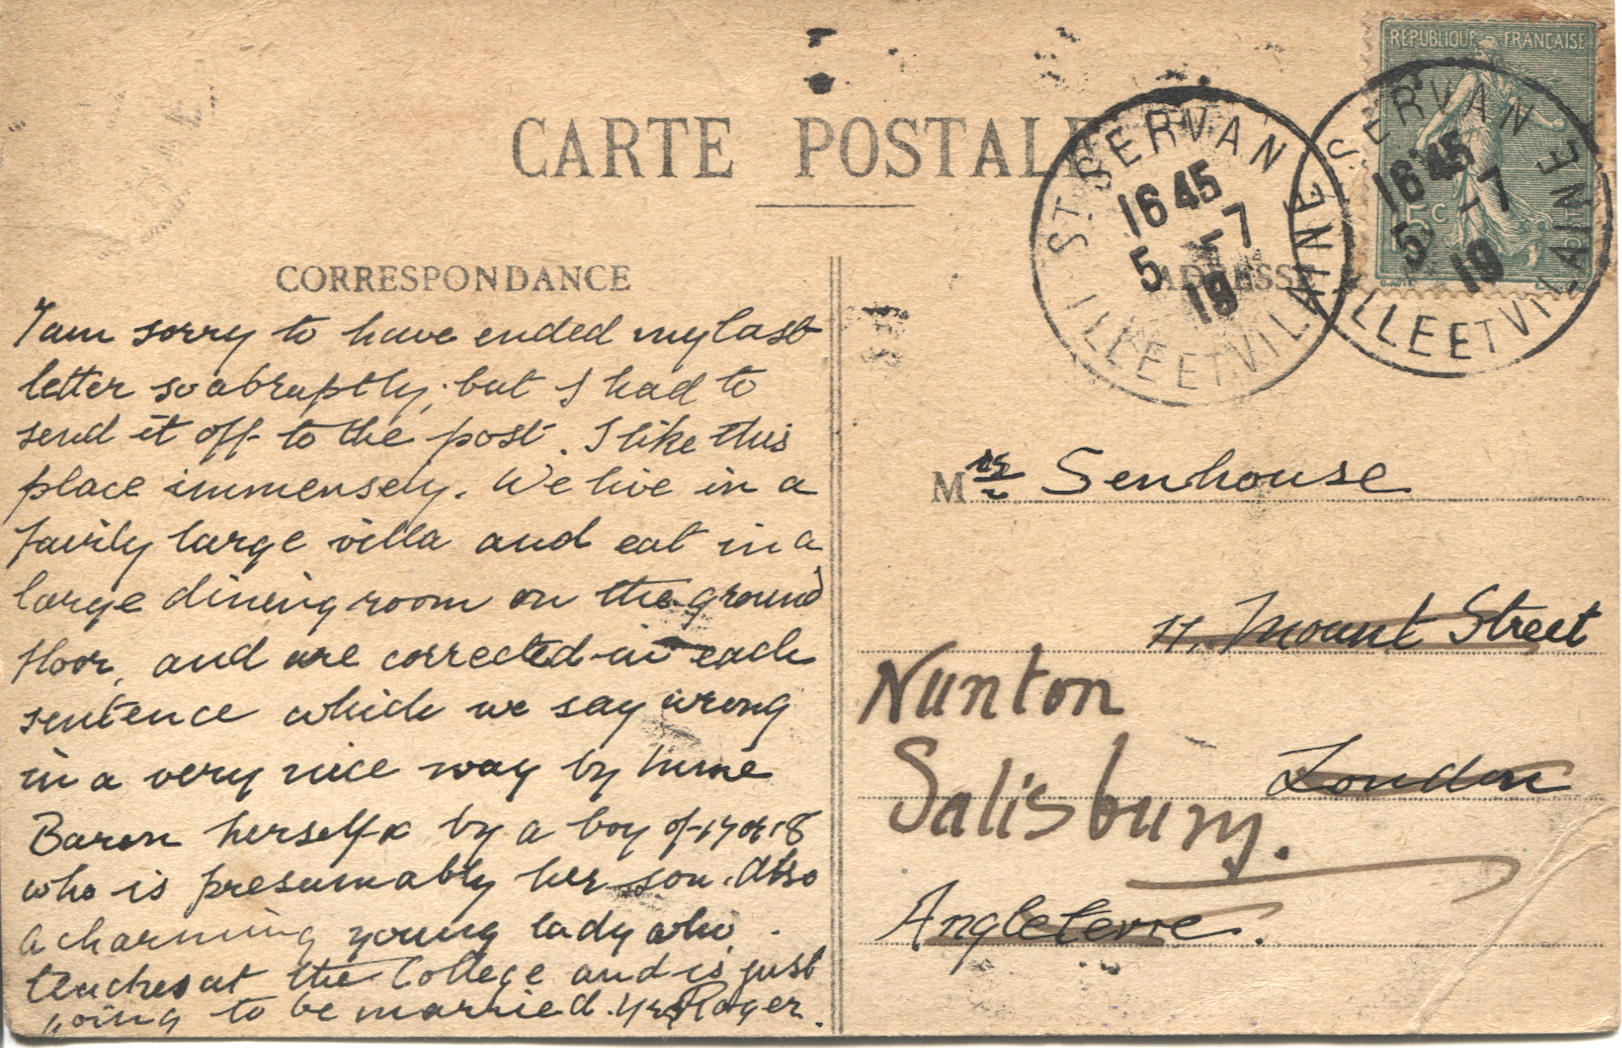 CARTE POSTALE
REPUBLIQUE FRANCAISE
15c
ST. SERVAN
16 45
5 -7
19
ILLE ET VILAINE
SERVAN
16 45
5 -7
19
ILLE ET VILAINE
CORRESPONDANCE
I am sorry to have ended my last
letter so abruptly, but I had to
send it off to the post. I like this
place immensely. We live in a
fairly large villa and eat in a
large dining room on the ground
floor, and are corrected in each
sentence which we say wrong
in a very nice way by
Baron herself & by a boy of 17 or 18
who is presumably her son. Also
a charming young lady who
teaches at the College and is just
going to be married. Yrs Roger.
ADRESSE
Mrs Senhouse
11, Mount Street
London
Nunton
Salisbury.
Angleterre.